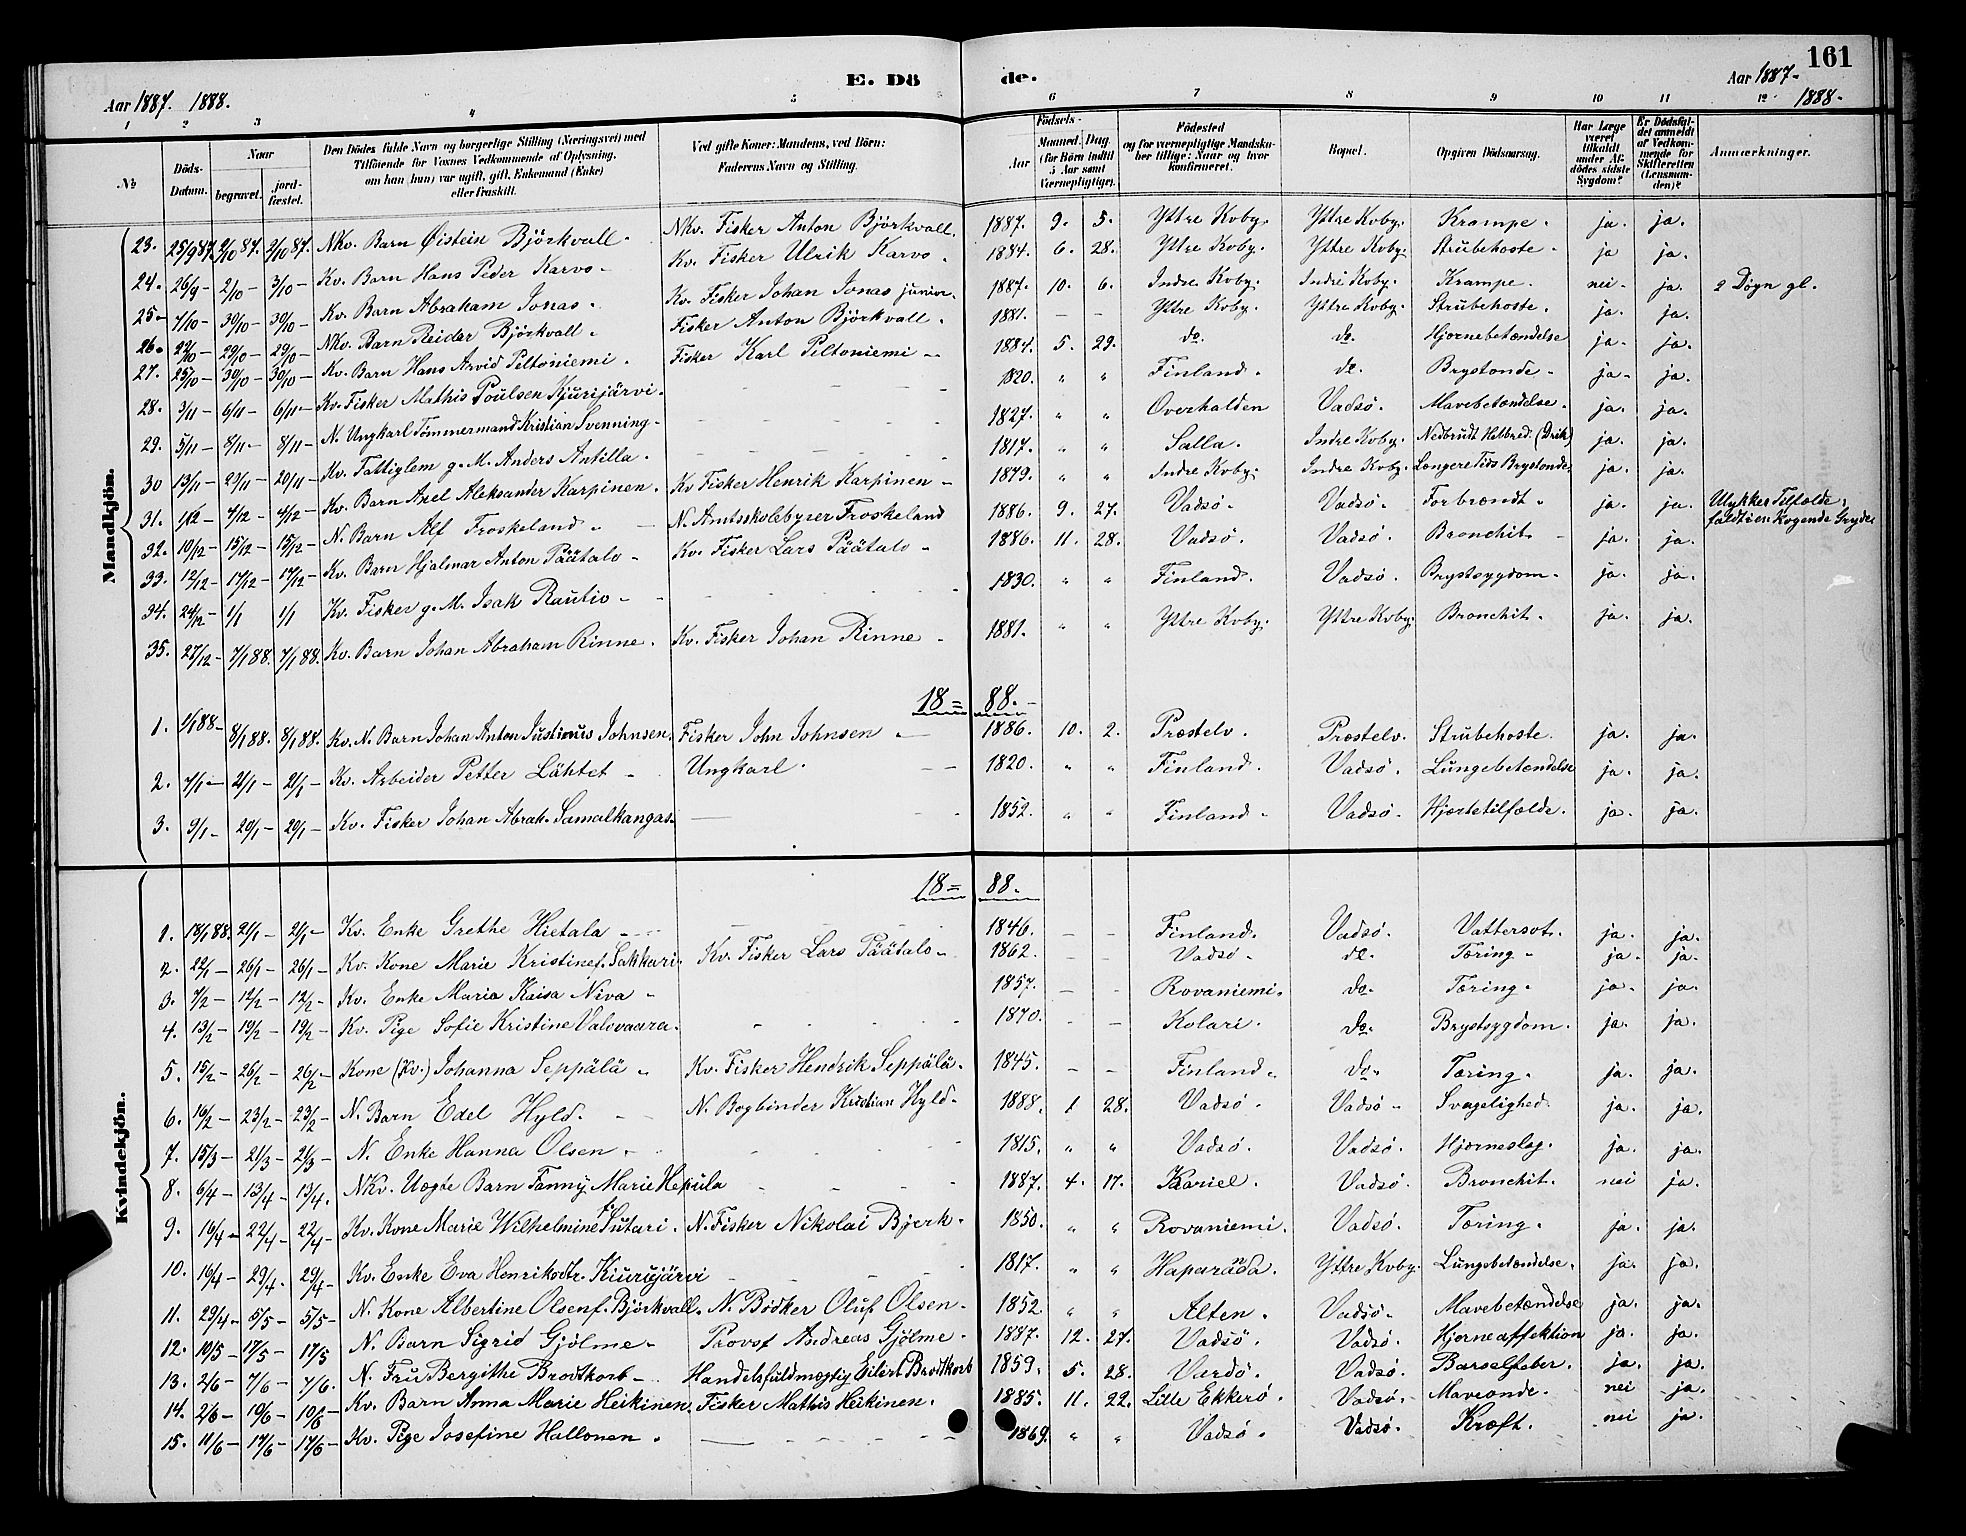 161
E. Dö de.
Aar 1887. 1888.
Aar 1887-
1888-
1 2 3 4 5 6 7 8 9 10 11 12
№
Döds-Datum.
Naar
begravet.
jord-fæstet.
Den Dödes fulde Navn og borgerlige Stilling (Næringsvei) med
Tilföiende for Voxnes Vedkommende af Oplysning,
om han (hun) var ugift, gift, Enkemand (Enke)
eller fraskilt.
Ved gifte Koner: Mandens, ved Börn:
Faderens Navn og Stilling.
Födsels-
Aar
Maaned, Dag
(for Börn indtil
5 Aar samt
Værnepligtige).
Födested
og for værnepligtige Mandska-
ber tillige: Naar og hvor
konfirmeret.
Bopæl.
Opgiven Dödsaarsag.
Har Læge
været
tilkaldt
under Af-
dödes sidste
Sygdom?
Er Dödsfal-
det anmeldt
af Vedkom-
mende for
Skifteretten
(Lensman-
den)?
Anmærkninger.
Mandkjön.
23. 25/9 87. 2/10 87. 2/10 87. NKv. Barn Øistein Björkvall. NKv. Fisker Anton Björkvall. 1887. 9. 5. Yttre Kvby. Yttre Kvby. Krampe. ja. ja.
24. 26/9 - 2/10 - 3/10 - Kv. Barn Hans Peder Karvo - Kv. Fisker Ulrik Karvo. 1884. 6. 28. Yttre Kvby. Yttre Kvby. Strubehoste. ja ja.
25 - 7/10 - 30/10 - 30/10 - Kv. Barn Abraham Jonas. Kv. Fisker Johan Jonas junior. 1887. 10. 6. Indre Kvby. Indre Kvby. Krampe. nei - ja. 2 Døgn gl.
26. 22/10 - 29/10 - 29/10 - NKv. Barn Reidar Björkvall. Fisker Anton Björkvall. 1881. - - Yttre Kvby. Yttre Kvby. Strubehoste. ja. ja.
27. 25/10 - 30/10 - 30/10 - Kv. Barn Hans Arvid Peltoniemi. Fisker Karl Peltoniemi - 1884. 5. 29. do. do. Hjernebetændelse ja. ja.
28. 3/11 - 6/11 - 6/11 - Kv. Fisker Mathis Poulsen Kjurijärvi. 1820. " " Finland. do. Brystonde - ja - ja.
29. 5/11 - 8/11 - 8/11 - N. Ungkarl Tömmermand Kristian Svenning - 1827. " " Overhalden Vadsö. Mavebetændelse. ja. ja.
30 13/11 - 20/11 - 20/11 - Kv. Fattiglem g. M. Anders Antilla. 1817. " " Salla. Indre Kvby. Nedbrudt Helbred. (Drik) ja. ja.
31. 1/12 - 4/12 - 4/12 - Kv. Barn Axel Aleksander Karpinen. Kv Fisker Henrik Karpinen - 1879. " " Indre Kvby. Indre Kvby. Længere Tids Brystonde. ja. ja.
32. 10/12 - 15/12 - 15/12 - N. Barn Alf Froskeland. N. Amtsskolebyrer Froskeland 1886. 9. 27. Vadsö. Vadsö. Forbrændt. ja. ja. Ulykkes Tilfælde, faldt i en Kogende Gryde
33. 12/12 - 17/12 - 17/12 - Kv. Barn Hjalmar Anton Päätalo - Kv. Fisker Lars Päätalo - 1886. 11. 28. Vadsö. Vadsö. Bronchit. ja. ja.
34. 24/12 - 1/1 1/1 Kv. Fisker g. M. Isak Rautio - 1830. " " Finland. Vadsö. Brystsygdom. ja. ja.
35. 27/12 - 7/1 88. 7/1 88. Kv. Barn Johan Abraham Rinne. Kv. Fisker Johan Rinne - 1881. " " Yttre Kvby. Yttre Kvby. Bronchit. ja. ja.
18 = 88. -
1. 1/1 88 - 8/1 88. 8/1 88. Kv. N. Barn Johan Anton Justinus Johnsen. Fisker John Johnsen. 1886. 10. 2. Præstelv. Præstelv. Strubehoste. ja. ja.
2. 7/1 - 21/1 - 21/1 - Kv. Arbeider Petter Lähtet - Ungkarl. 1820. " " Finland. Vadsö. Lungebetændelse ja. ja.
3. 9/1 - 20/1 - 20/1 - Kv. Fisker Johan Abrah. Samalkangas. 1852. " " Finland. Vadsö. Hjertetilfælde. ja. ja.
Kvindekjön.
18 = 88.
1. 18/1 88. 21/1 - 21/1 - Kv. Enke Grethe Hietala - 1846. - - Finland. Vadsö. Vattersot. ja. ja.
2. 22/1 - 26/1 - 26/1 - Kv. Kone Marie Kristine f. Sakkari. Kv. Fisker Lars Päätalo - 1862. - - Vadsö. do. Tæring - ja. ja.
3. 7/2 - 12/2 - 12/2 - Kv. Enke Maria Kaisa Niva - 1857. - - Rovaniemi. do. Tæring. ja. ja.
4. 13/2 - 19/2 - 19/2 - Kv. Pige Sofie Kristine Valovaara. 1870. - - Kolari. do. Brystsygdom. ja. ja.
5. 15/2 - 26/2 - 26/2 - Kone (Kv.) Johanna Seppälä - Kv. Fisker Hendrik Seppälä. 1845. - - Finland. do. Tæring. ja. ja.
6. 16/2 - 23/2 - 23/2 - N. Barn Edel Hyld. N. Bogbinder Kristian Hyld. 1888. 1 28. Vadsö. Vadsö - Svagelighed. ja. ja.
7. 15/3 - 21/3 - 21/3 - N. Enke Hanna Olsen. 1815. " " Vadsö. Vadsö. Hjerneslag. ja. ja.
8. 6/4 - 13/4 - 13/4. NKv. Uægte Barn Fanny Marie Hepula 1887. 4. 17. Kariel. Vadsö. Bronchit. nei ja.
9. 16/4 - 22/4 - 22/4 - Kv. Kone Marie Wilhelmine f. Sutari. N. Fisker Nikolai Bjerk. 1850. " " Rovaniemi. Vadsö. Tæring. ja. ja.
10. 16/4 - 29/4. 29/4 - Kv. Enke Eva Henriksdtr. Kiurujärvi 1817. " " Haparanda. Yttre Kvby. Lungebetændelse. ja. ja.
11. 29/4 - 5/5 - 5/5 - N. Kone Albertine Olsen f. Björkvall. N. Bödker Oluf Olsen. 1852. " " Alten. Vadsö. Mavebetændelse ja. ja.
12. 10/5 - 17/5 - 17/5 N. Barn Sigrid Gjölme - Provst Andreas Gjölme. 1887. 12. 27. Vadsö. Vadsö. Hjerneaffektion ja. ja.
13. 2/6 - 7/6 - 7/6. N. Fru Bergithe Brodtkorb - Handelsfuldmægtig Eilert Brodtkorb 1859. 5. 28. Vardö. Vadsö. Barselfeber. ja. ja.
14. 2/6 - 10/6 - 10/6 - Kv. Barn Anna Marie Heikinen. Fisker Mathis Heikinen. 1885. 11. 22. Lille Ekkerö. Vadsö. Maveonde. nei ja.
15. 11/6 - 17/6 - 17/6 - Kv. Pige Josefine Hallonen. 1869. " " Vadsö. Vadsö. Kræft. nei ja.